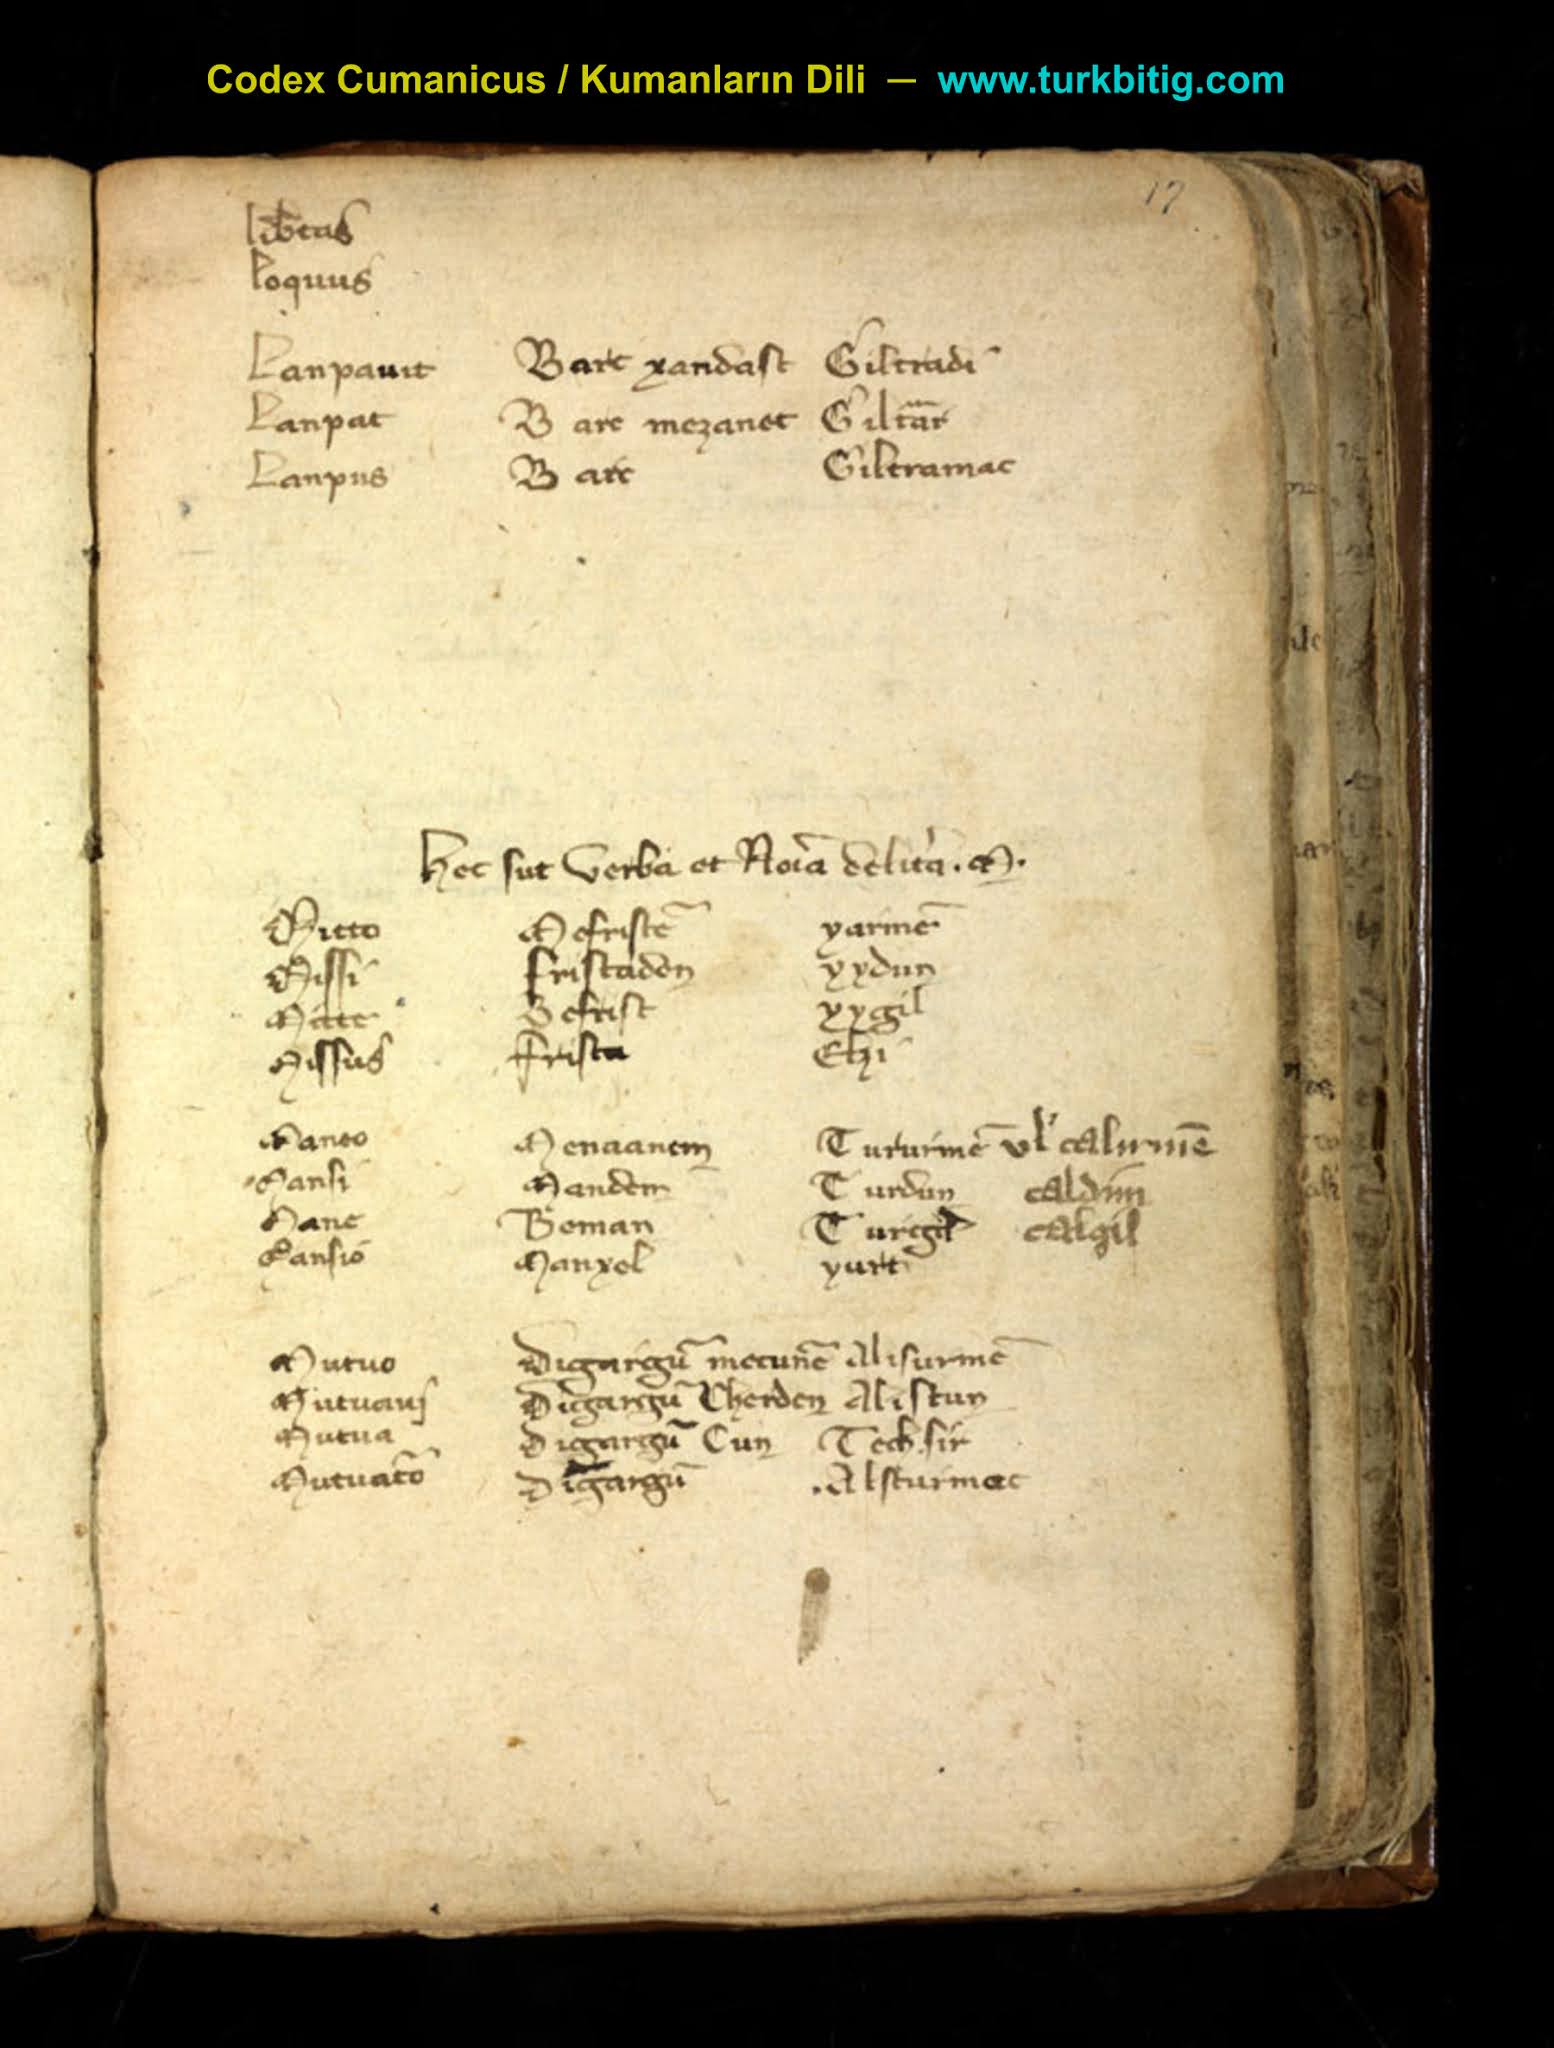 Codex Cumanicus / Kumanların Dili — www.turkbitig.com
17
lib̄tas
loquus
Lanpauit Barc yandast Giltradi
Lanpat Barc mezanet Giltar̄
Lanpus Barc Giltramac
hec sūt verba et Noīa de lit̄a . M .
Mitto Mefristē yarmē
Missi fristaden yydun
Mitte Befrist yygil
Missus frista Elzi
Maneo Menaanem Tururmē vl' calurmē
Mansi Mandem Turdun caldim
Mane Beman Turgil calgil
Mansio Manyel yurt
Mutuo Digargū mecunē Alisurmē
Mutuaui Digargū Cherden Alistun
Mutua Digargū Cun Tech sir
Mutuatō Digargū Alsturmac